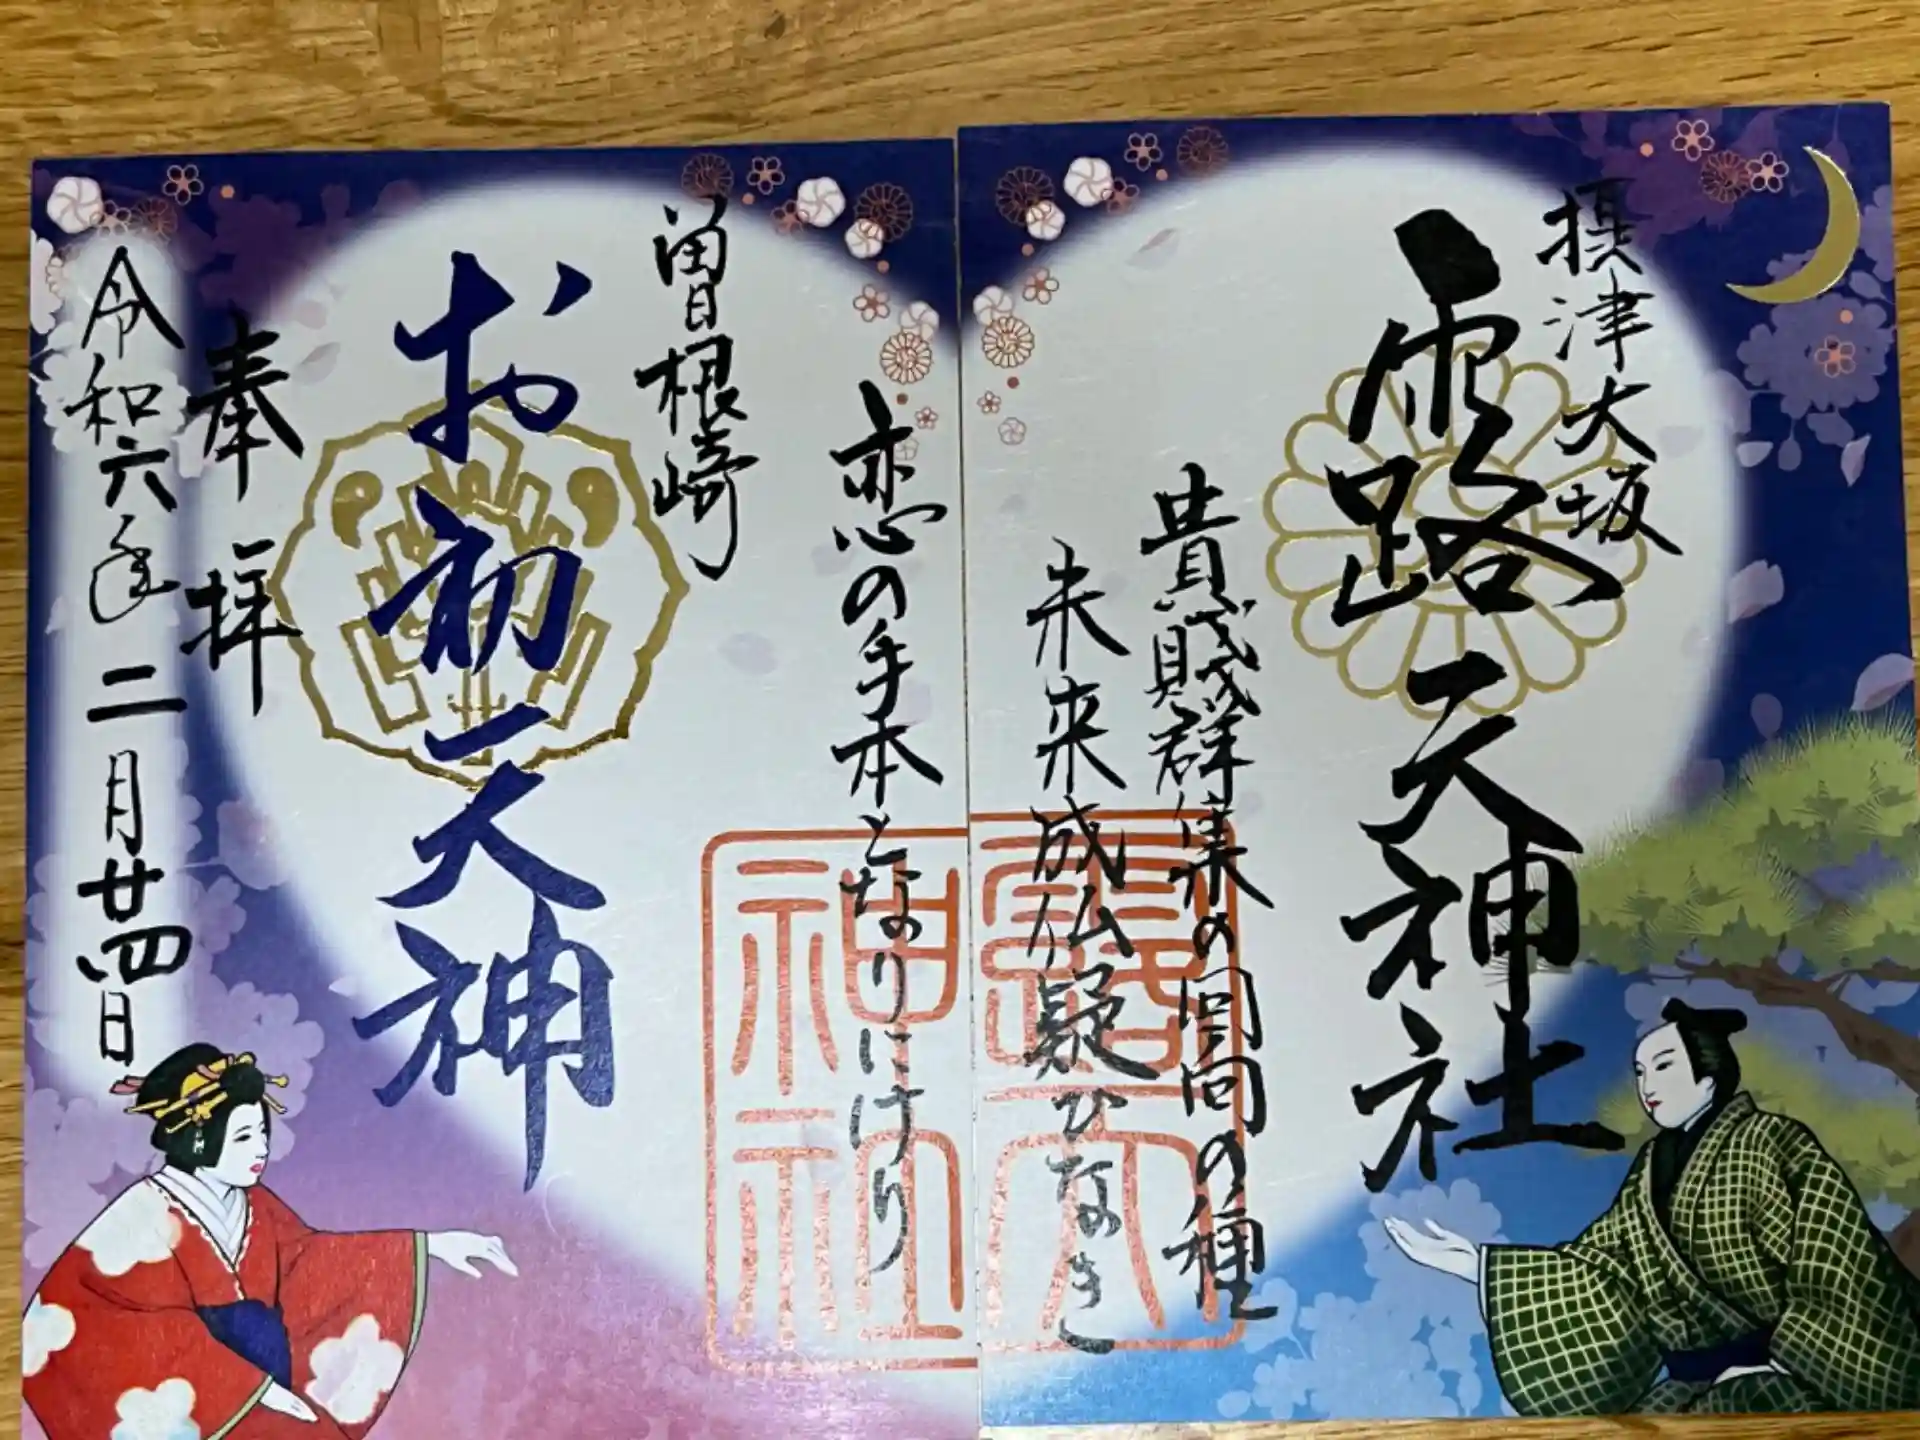 摂津大坂
露天神社
貴賎群集の回向の種
未来成仏疑ひなき
恋の手本となりにけり
曽根崎
お初天神
奉拝
令和六年二月廿四日
露天
神社